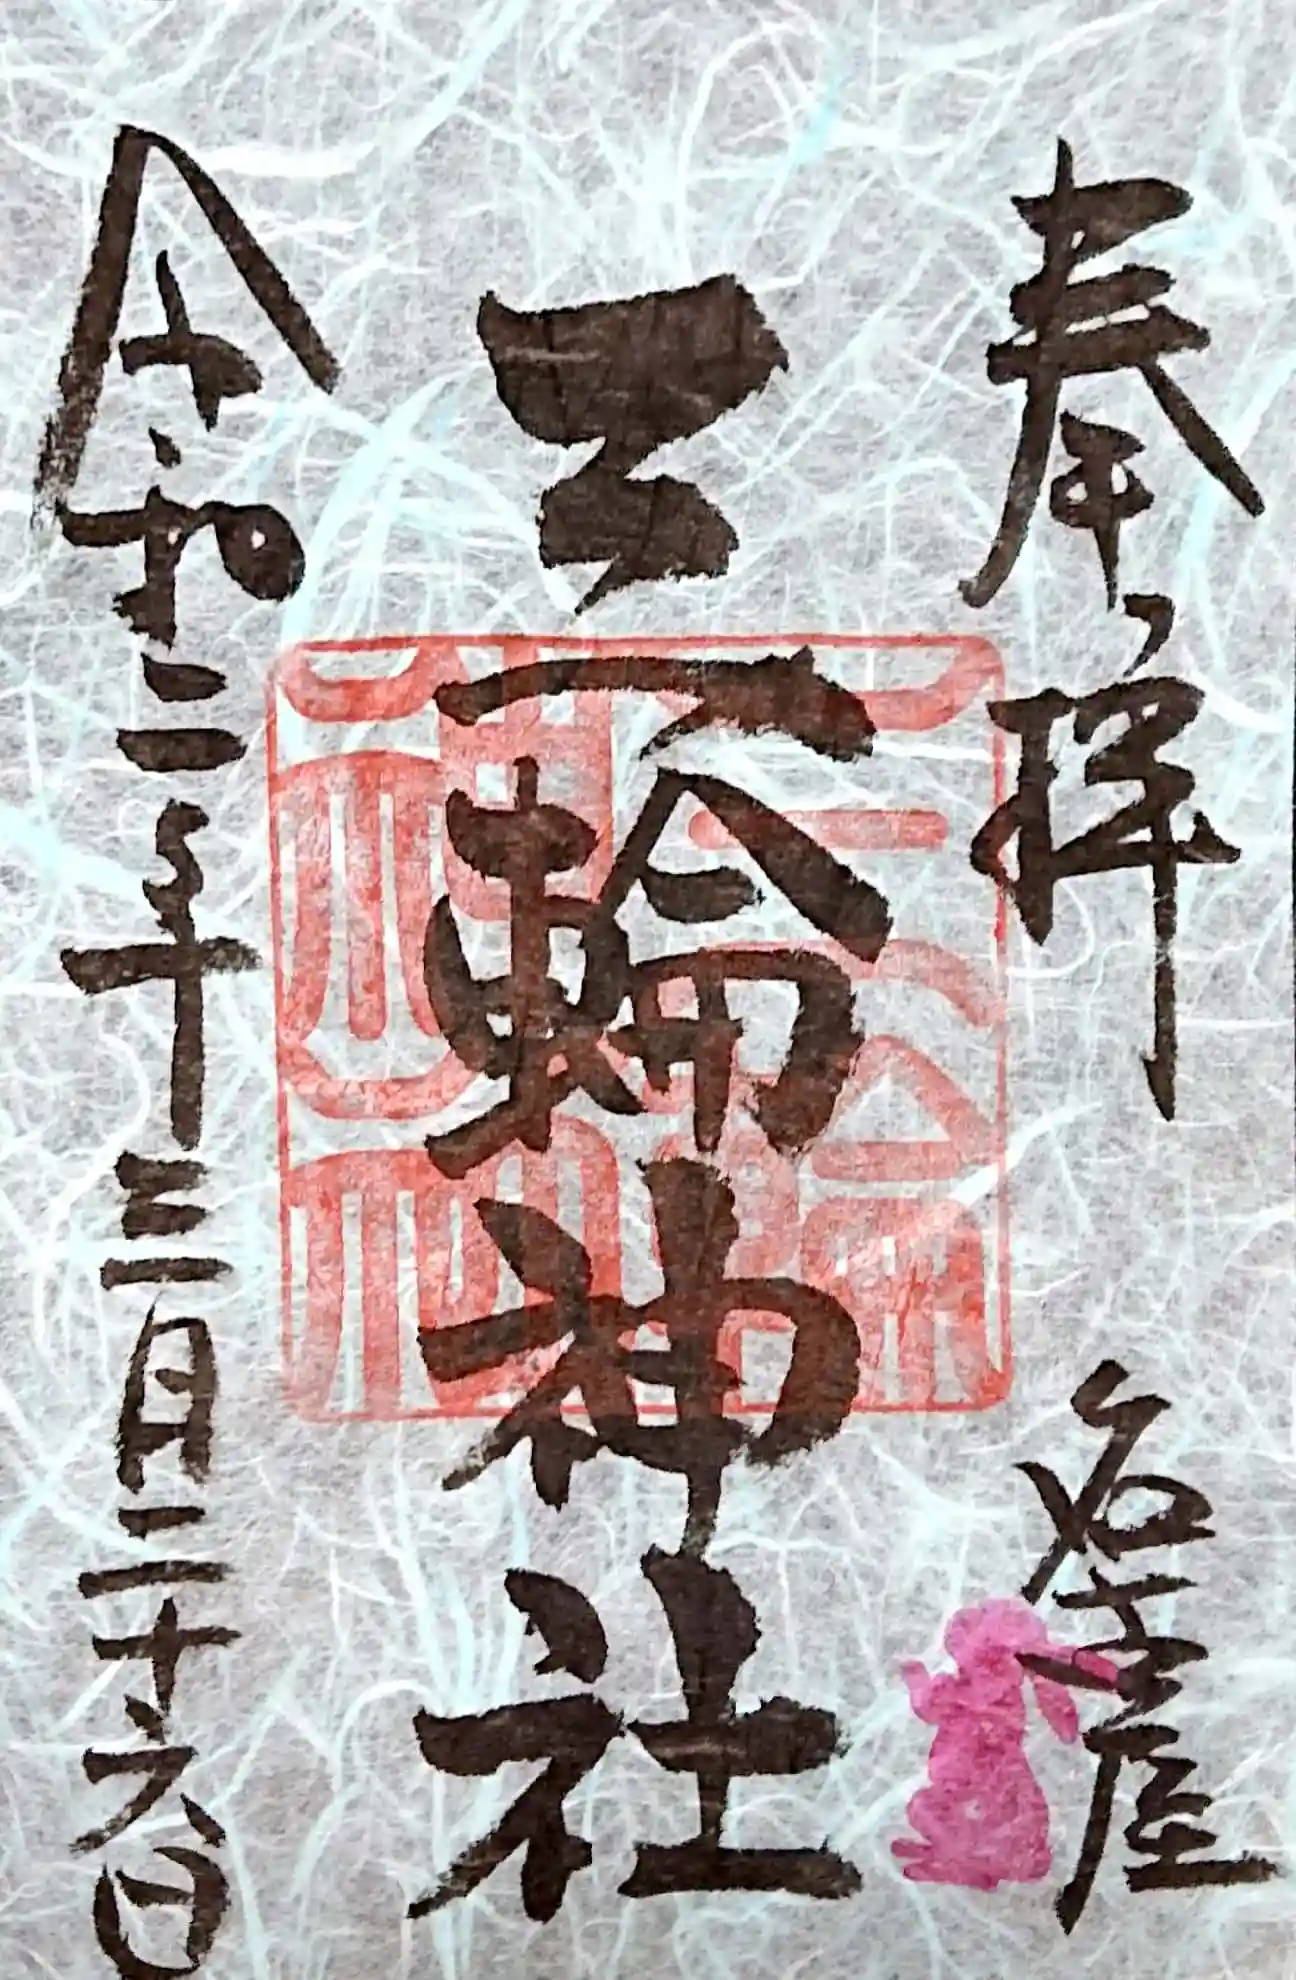 奉拝
名古屋
三輪神社
三輪神社
令和二年三月二十六日